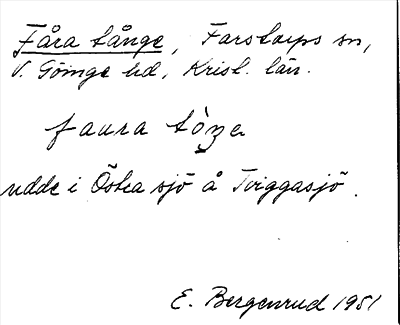 Fåra tånge, Farstorps sn,
V. Göinge hd, Krist. län.
faura tòŋe
udde i Östra sjö å Tviggasjö.
E. Bergenrud 1951